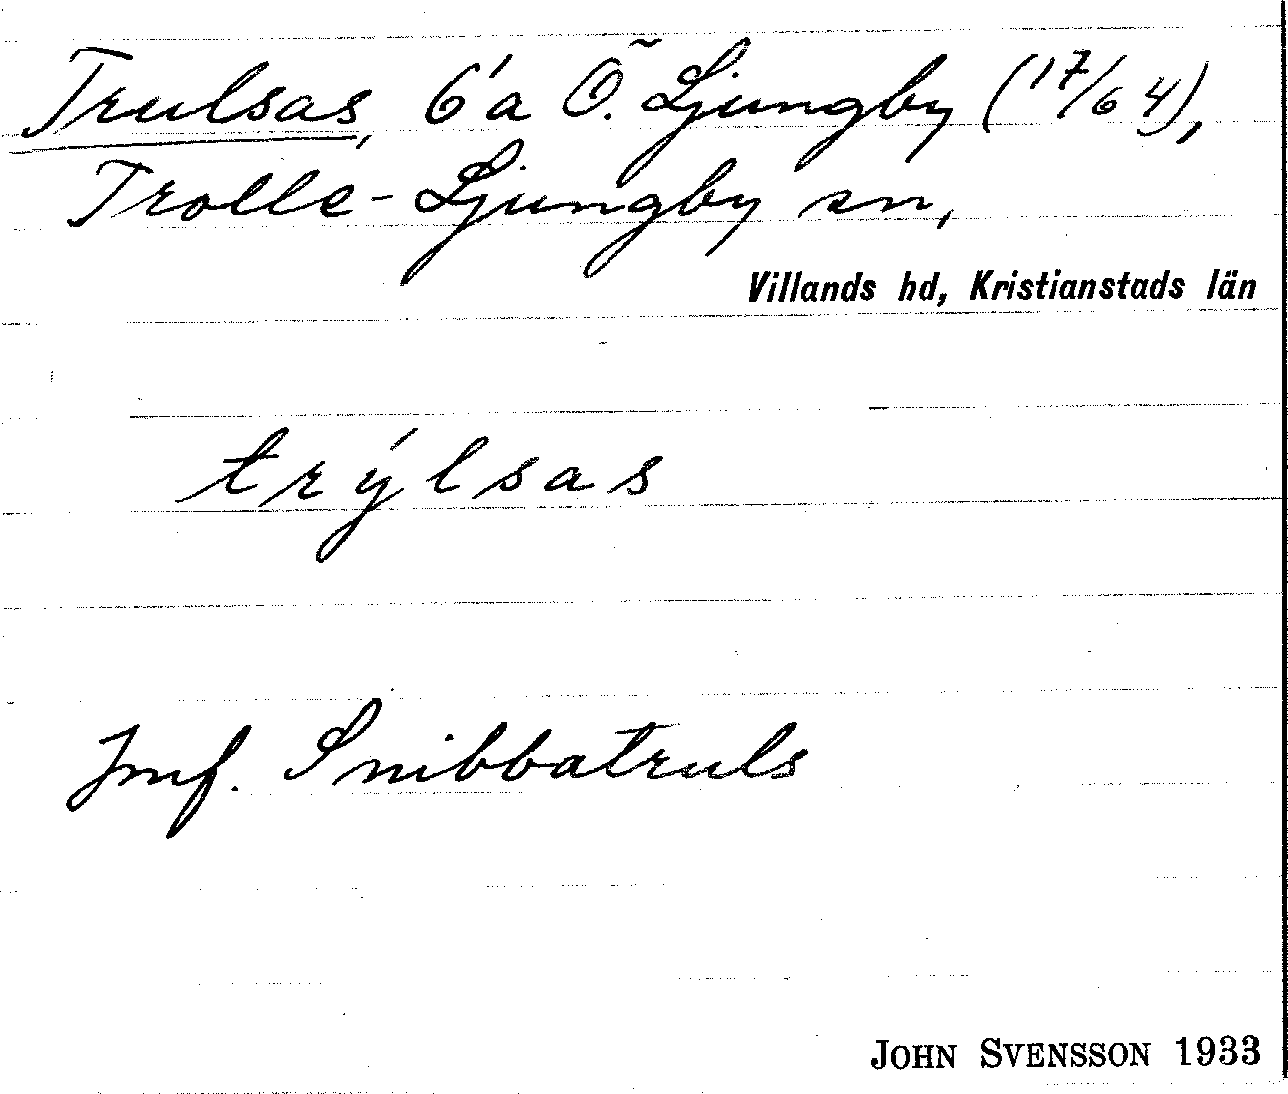 Trulsas, 6'a Ö. Ljungby (17/64),
Trolle-Ljungby sn,
Villands hd, Kristianstads län
trýlsas
Jmf. Snibbatruls
JOHN SVENSSON 1933